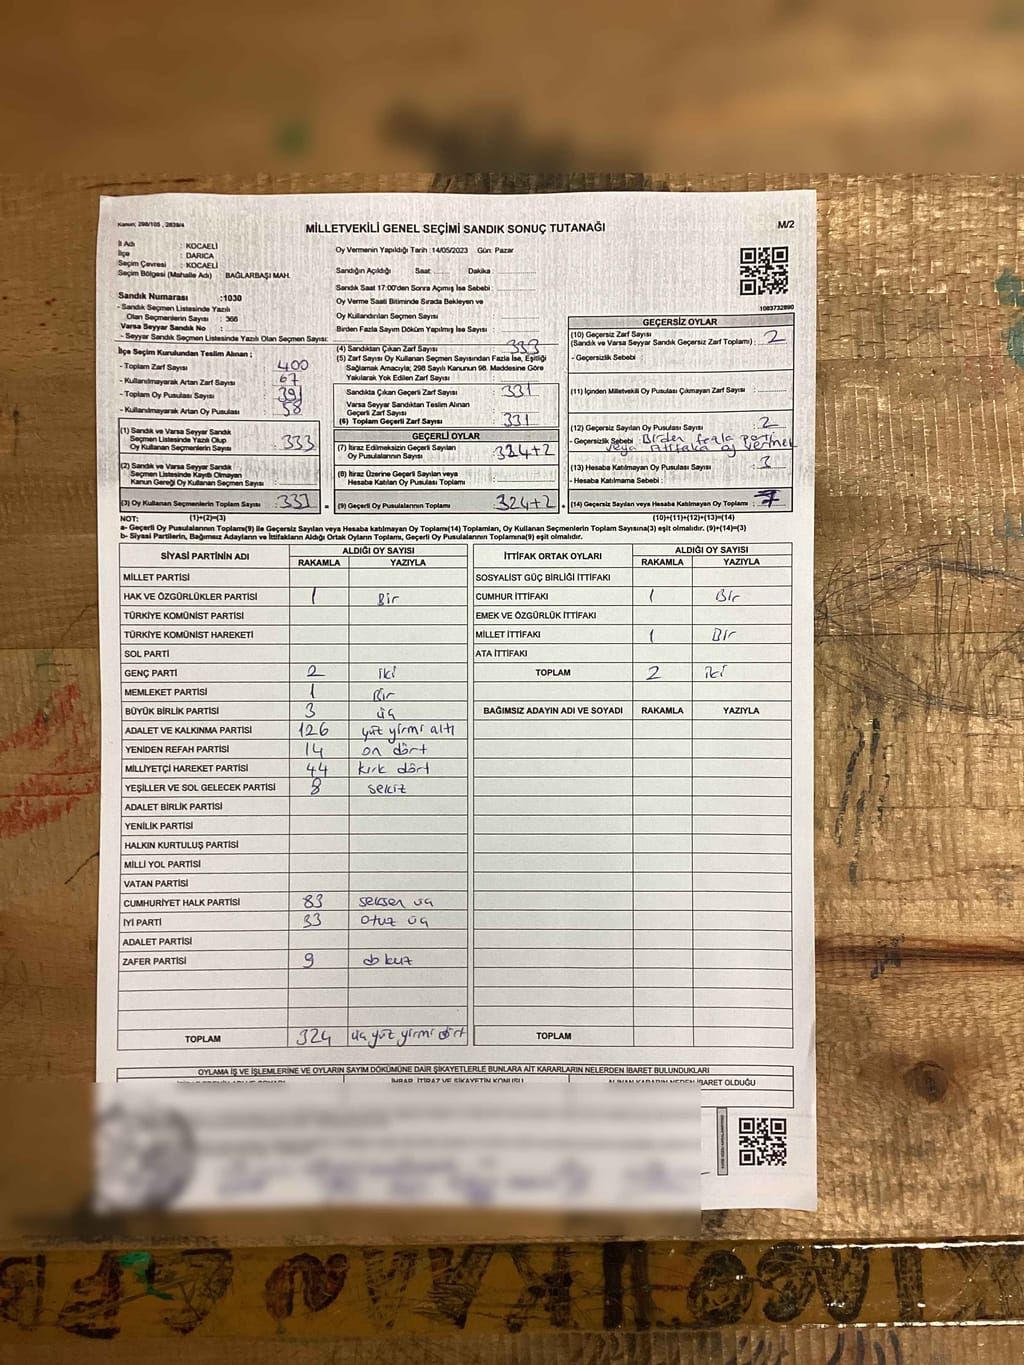 Kanun: 298/105 , 2839/4
MİLLETVEKİLİ GENEL SEÇİMİ SANDIK SONUÇ TUTANAĞI
M/2
İl Adı : KOCAELİ
İlçe : DARICA
Seçim Çevresi : KOCAELİ
Seçim Bölgesi (Mahalle Adı) : BAĞLARBAŞI MAH.
Sandık Numarası :1030
- Sandık Seçmen Listesinde Yazılı
Olan Seçmenlerin Sayısı : 366
Varsa Seyyar Sandık No :
- Seyyar Sandık Seçmen Listesinde Yazılı Olan Seçmen Sayısı:
İlçe Seçim Kurulundan Teslim Alınan ;
- Toplam Zarf Sayısı : 400
- Kullanılmayarak Artan Zarf Sayısı : 67
- Toplam Oy Pusulası Sayısı : 391
- Kullanılmayarak Artan Oy Pusulası : 58
(1) Sandık ve Varsa Seyyar Sandık
Seçmen Listesinde Yazılı Olup
Oy Kullanan Seçmenlerin Sayısı : 333
(2) Sandık ve Varsa Seyyar Sandık
Seçmen Listesinde Kayıtlı Olmayan
Kanun Gereği Oy Kullanan Seçmenlerin Sayısı:
(3) Oy Kullanan Seçmenlerin Toplam Sayısı :
Oy Vermenin Yapıldığı Tarih :14/05/2023 Gün: Pazar
Sandığın Açıldığı Saat: Dakika :
Sandık Saat 17:00'den Sonra Açılmış İse Sebebi :
Oy Verme Saati Bitiminde Sırada Bekleyen ve
Oy Kullandırılan Seçmen Sayısı :
Birden Fazla Sayım Döküm Yapılmış İse Sayısı :
(4) Sandıktan Çıkan Zarf Sayısı : 333
(5) Zarf Sayısı Oy Kullanan Seçmen Sayısından Fazla İse, Eşitliği
Sağlamak Amacıyla; 298 Sayılı Kanunun 98. Maddesine Göre
Yakılarak Yok Edilen Zarf Sayısı :
Sandıkta Çıkan Geçerli Zarf Sayısı : 331
Varsa Seyyar Sandıktan Teslim Alınan
Geçerli Zarf Sayısı :
(6) Toplam Geçerli Zarf Sayısı : 331
GEÇERLİ OYLAR
(7) İtiraz Edilmeksizin Geçerli Sayılan
Oy Pusulalarının Sayısı : 324+2
(8) İtiraz Üzerine Geçerli Sayılan veya
Hesaba Katılan Oy Pusulası Toplamı :
(9) Geçerli Oy Pusulalarının Toplamı : 324+2
1083732890
GEÇERSİZ OYLAR
(10) Geçersiz Zarf Sayısı
(Sandık ve Varsa Seyyar Sandık Geçersiz Zarf Toplamı) : 2
- Geçersizlik Sebebi :
(11) İçinden Milletvekili Oy Pusulası Çıkmayan Zarf Sayısı :
(12) Geçersiz Sayılan Oy Pusulası Sayısı : 2
- Geçersizlik Sebebi : Birden fazla parti
veya ittifaka oy vermek
(13) Hesaba Katılmayan Oy Pusulası Sayısı : 3
- Hesaba Katılmama Sebebi :
(14) Geçersiz Sayılan veya Hesaba Katılmayan Oy Toplamı : 7
NOT: (1)+(2)=(3)
(10)+(11)+(12)+(13)=(14)
a- Geçerli Oy Pusulalarının Toplamı(9) ile Geçersiz Sayılan veya Hesaba katılmayan Oy Toplamı(14) Toplamları, Oy Kullanan Seçmenlerin Toplam Sayısına(3) eşit olmalıdır. (9)+(14)=(3)
b- Siyasi Partilerin, Bağımsız Adayların ve İttifakların Aldığı Ortak Oyların Toplamı, Geçerli Oy Pusulalarının Toplamına(9) eşit olmalıdır.
SİYASİ PARTİNİN ADI ALDIĞI OY SAYISI
RAKAMLA YAZIYLA
MİLLET PARTİSİ
HAK VE ÖZGÜRLÜKLER PARTİSİ 1 Bir
TÜRKİYE KOMÜNİST PARTİSİ
TÜRKİYE KOMÜNİST HAREKETİ
SOL PARTİ
GENÇ PARTİ 2 iki
MEMLEKET PARTİSİ 1 Bir
BÜYÜK BİRLİK PARTİSİ 3 üç
ADALET VE KALKINMA PARTİSİ 126 yüz yirmi altı
YENİDEN REFAH PARTİSİ 14 on dört
MİLLİYETÇİ HAREKET PARTİSİ 44 kırk dört
YEŞİLLER VE SOL GELECEK PARTİSİ 8 sekiz
ADALET BİRLİK PARTİSİ
YENİLİK PARTİSİ
HALKIN KURTULUŞ PARTİSİ
MİLLİ YOL PARTİSİ
VATAN PARTİSİ
CUMHURİYET HALK PARTİSİ 83 seksen üç
İYİ PARTİ 33 otuz üç
ADALET PARTİSİ
ZAFER PARTİSİ 9 dokuz
TOPLAM 324 üç yüz yirmi dört
İTTİFAK ORTAK OYLARI ALDIĞI OY SAYISI
RAKAMLA YAZIYLA
SOSYALİST GÜÇ BİRLİĞİ İTTİFAKI
CUMHUR İTTİFAKI 1 Bir
EMEK VE ÖZGÜRLÜK İTTİFAKI
MİLLET İTTİFAKI 1 Bir
ATA İTTİFAKI
TOPLAM 2 iki
BAĞIMSIZ ADAYIN ADI VE SOYADI RAKAMLA YAZIYLA
TOPLAM
OYLAMA İŞ VE İŞLEMLERİNE VE OYLARIN SAYIM DÖKÜMÜNE DAİR ŞİKAYETLERLE BUNLARA AİT KARARLARIN NELERDEN İBARET BULUNDUKLARI
İHBAR, İTİRAZ VE ŞİKAYETİN KONUSU